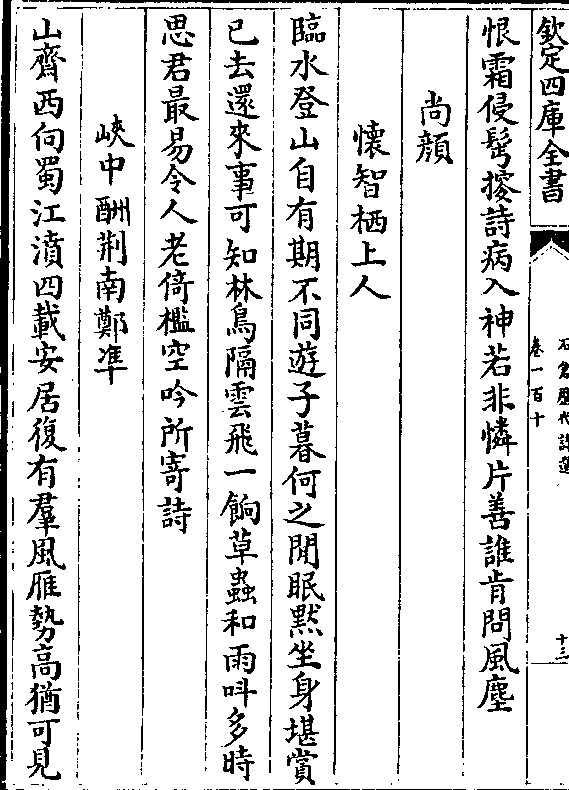 欽定四庫全書
石倉歷代詩選
卷一百十
十三
恨霜侵髩挼詩病入神若非憐片善誰肯問風塵
尚顔
懷智栖上人
臨水登山自有期不同遊子暮何之閒眠黙坐身堪賞
已去還來事可知林鳥隔雲飛一餉草蟲和雨呌多時
思君最易令人老倚檻空吟所寄詩
峽中酬荆南鄭準
山齊西向蜀江濆四載安居復有羣風雁勢高猶可見